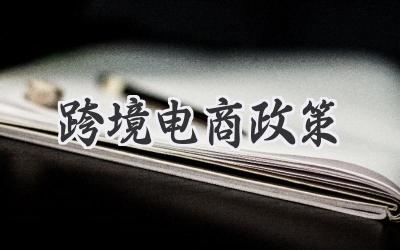 跨境电商政策